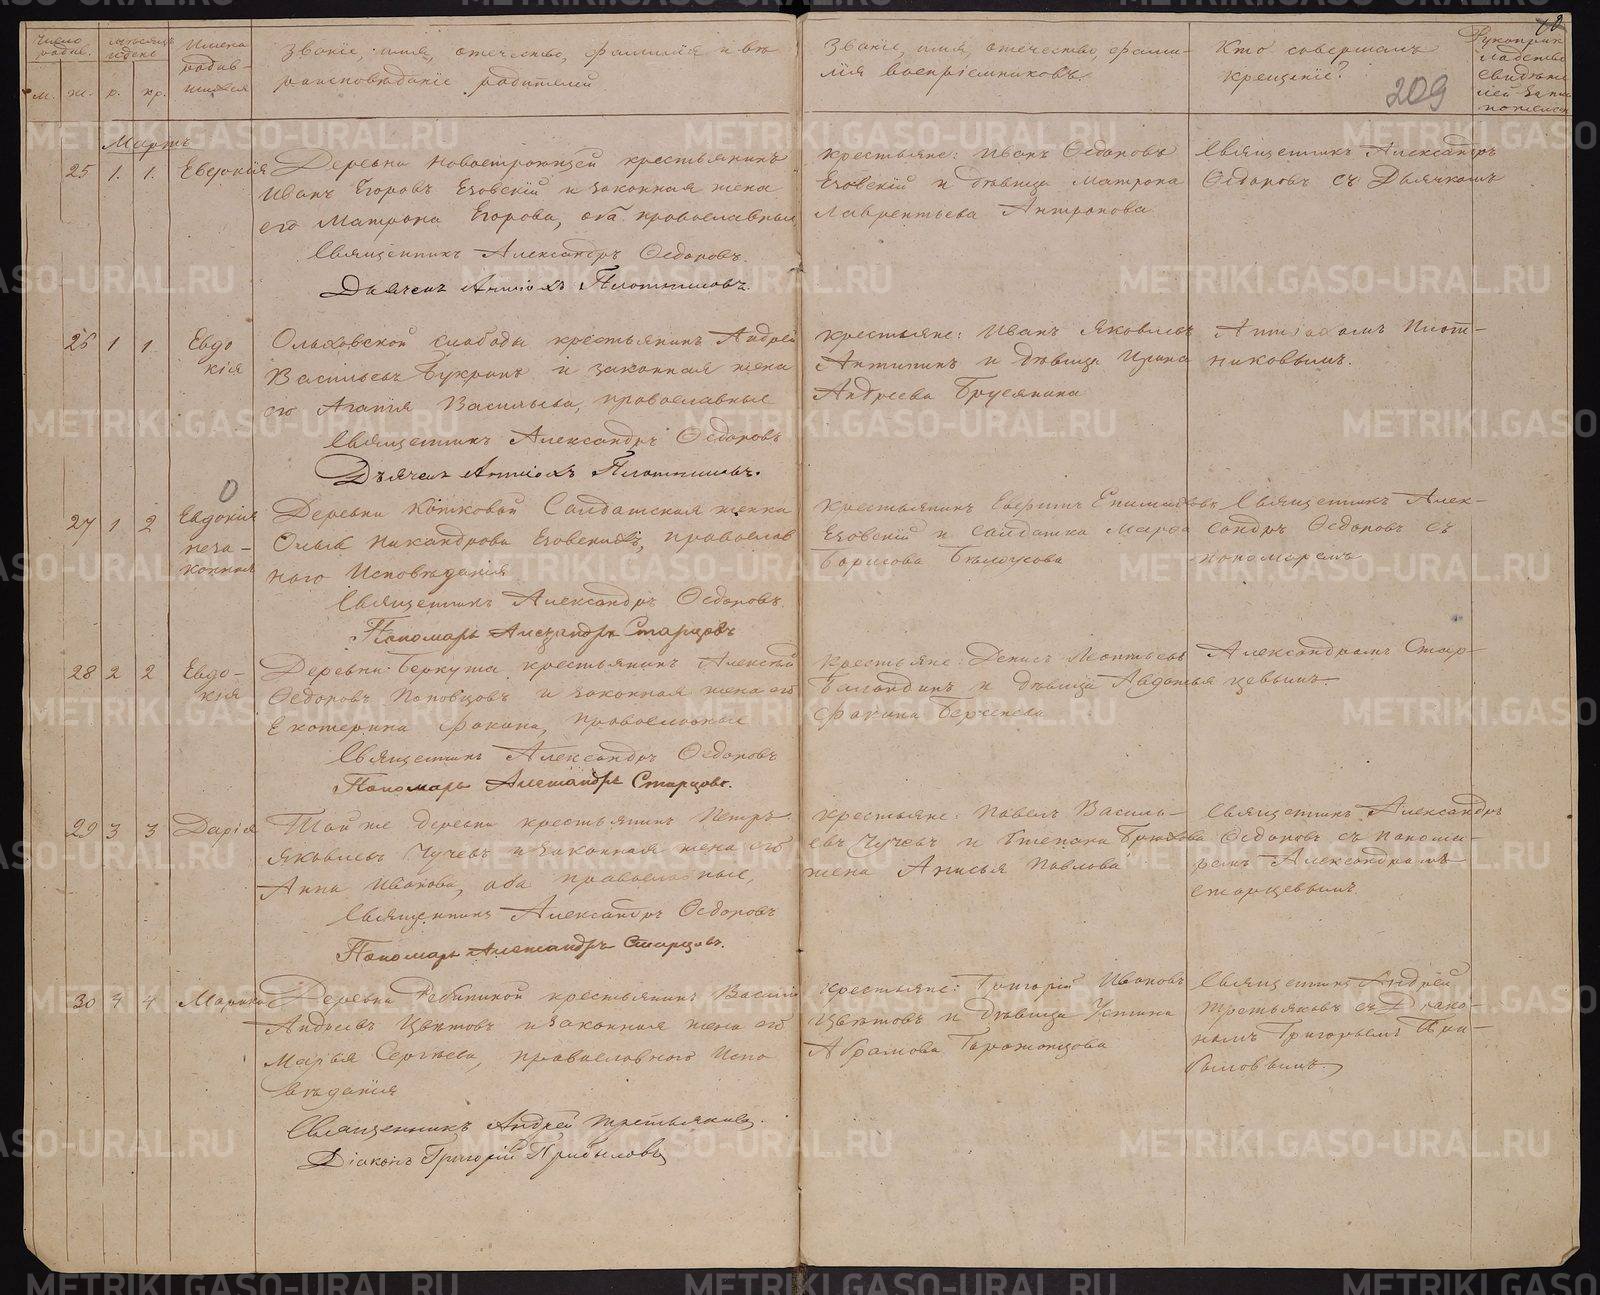 Число родив.
Мѣсяцъ и день
Имена родив-
шихся
Званіе, имя, отечество, фамилія и вѣ
роисповѣданіе родителей.
Званіе, имя, отечество, фами-
лія воспріемниковъ.
Кто совершалъ
крещеніе?
209
м. ж. р. кр.
Мартъ
25 1. 1. Евдокія
Деревни Новостроющей крестьянинъ
Иванъ Егоровъ Езовскій и законная жена
его Матрона Егорова, оба православные
Священникъ Александръ Ѳедоровъ.
Дьячекъ Антіохъ Плотниковъ.
крестьяне: Иванъ Ѳедоровъ
Езовскій и дѣвица Матрона
Лаврентьева Антропова
Священникъ Александръ
Ѳедоровъ съ Дьячкомъ
26 1 1. Евдо
кія
Ольховской слободы крестьянинъ Андрей
Васильевъ и законная жена
его Агапія Васильева, православные
Священникъ Александръ Ѳедоровъ
Дьячекъ Антіохъ Плотниковъ.
крестьяне: Иванъ Яковлевъ
Антипинъ и дѣвица Ирина
Андреева Брусянина
Антіохомъ Плот-
никовымъ.
27 1 2 Евдокія
неза-
конная
Деревни Котковой Салдатская женка
Никандрова православ
наго Исповѣданія
Священникъ Александръ Ѳедоровъ.
Пономарь Александръ Старцовъ
крестьянинъ
Езовскій и салдатка Марѳа
Борисова Бѣлоусова
Священникъ Алек-
сандръ Ѳедоровъ съ
пономаремъ
28 2 2 Евдо-
кія
Деревни Беркута крестьянинъ Алексѣй
Ѳедоровъ Поповцовъ и законная жена его
Екатерина Фокина, православные
Священникъ Александръ Ѳедоровъ
Пономарь Александръ Старцовъ.
крестьяне: Денисъ Леонтьевъ
Баландинъ и дѣвица Авдотья
Фокина Берсенева
Александромъ Стар-
цевымъ.
29 3 3 Дарія
Той же деревни крестьянинъ Петръ
Яковлевъ Чучевъ и законная жена его
Анна Иванова, оба православные,
Священникъ Александръ Ѳедоровъ
Пономарь Александръ Старцовъ.
крестьяне: Павелъ Василь-
евъ Чучевъ и Степана Брюхова
жена Анисья Павлова
Священникъ Александръ
Ѳедоровъ съ понома-
ремъ Александромъ
Старцевымъ.
30 4 4 Марина
Деревни Рябининой крестьянинъ Василій
Андреевъ Цвѣтовъ и законная жена его
Марья Сергѣева, православнаго Испо
вѣданія
Священникъ Андрей Третьяковъ.
Діаконъ Григорій Прибыловъ
крестьяне: Григорій Ивановъ
Цвѣтовъ и дѣвица Устина
Абрамова
Священникъ Андрей
Третьяковъ съ Діако-
номъ Григорьемъ При-
быловымъ.
METRIKI.GASO-URAL.RU